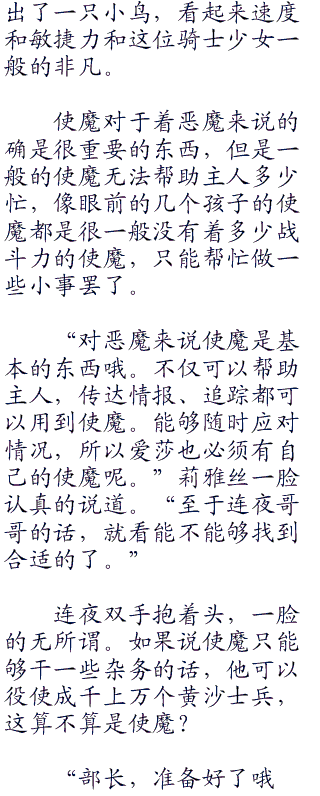 出了一只小鸟，看起来速度
和敏捷力和这位骑士少女一
般的非凡。
使魔对于着恶魔来说的
确是很重要的东西，但是一
般的使魔无法帮助主人多少
忙，像眼前的几个孩子的使
魔都是很一般没有着多少战
斗力的使魔，只能帮忙做一
些小事罢了。
“对恶魔来说使魔是基
本的东西哦。不仅可以帮助
主人，传达情报、追踪都可
以用到使魔。能够随时应对
情况，所以爱莎也必须有自
己的使魔呢。”莉雅丝一脸
认真的说道。“至于连夜哥
哥的话，就看能不能够找到
合适的了。”
连夜双手抱着头，一脸
的无所谓。如果说使魔只能
够干一些杂务的话，他可以
役使成千上万个黄沙士兵，
这算不算是使魔？
“部长，准备好了哦